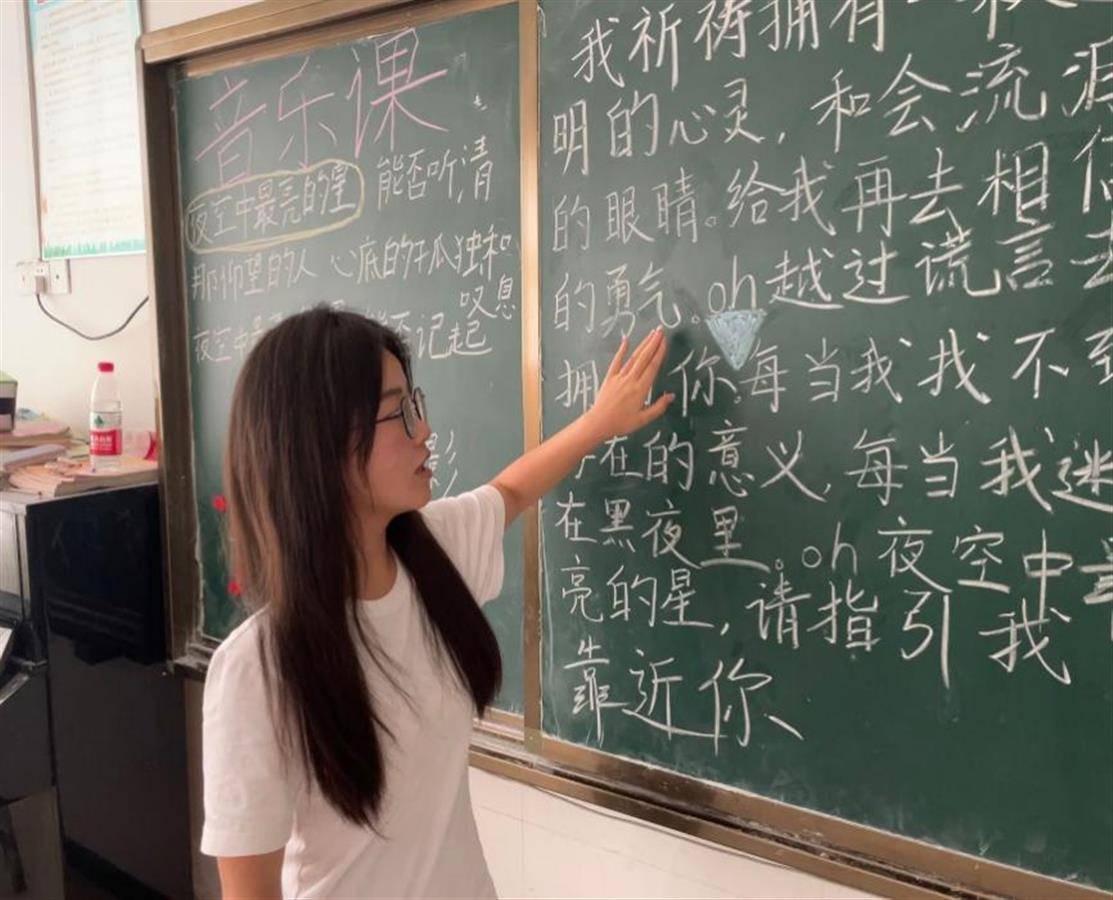 音乐课
夜空中最亮的星 能否听清
那仰望的人 心底的孤独和
叹息
夜空中最 能否记起
我祈祷拥有一
明的心灵，和会流泪
的眼睛。给我再去相信
的勇气。oh越过谎言去
拥 你。每当我找不到
存在的意义，每当我迷
在黑夜里。oh夜空中最
亮的星，请指引我
靠近你、